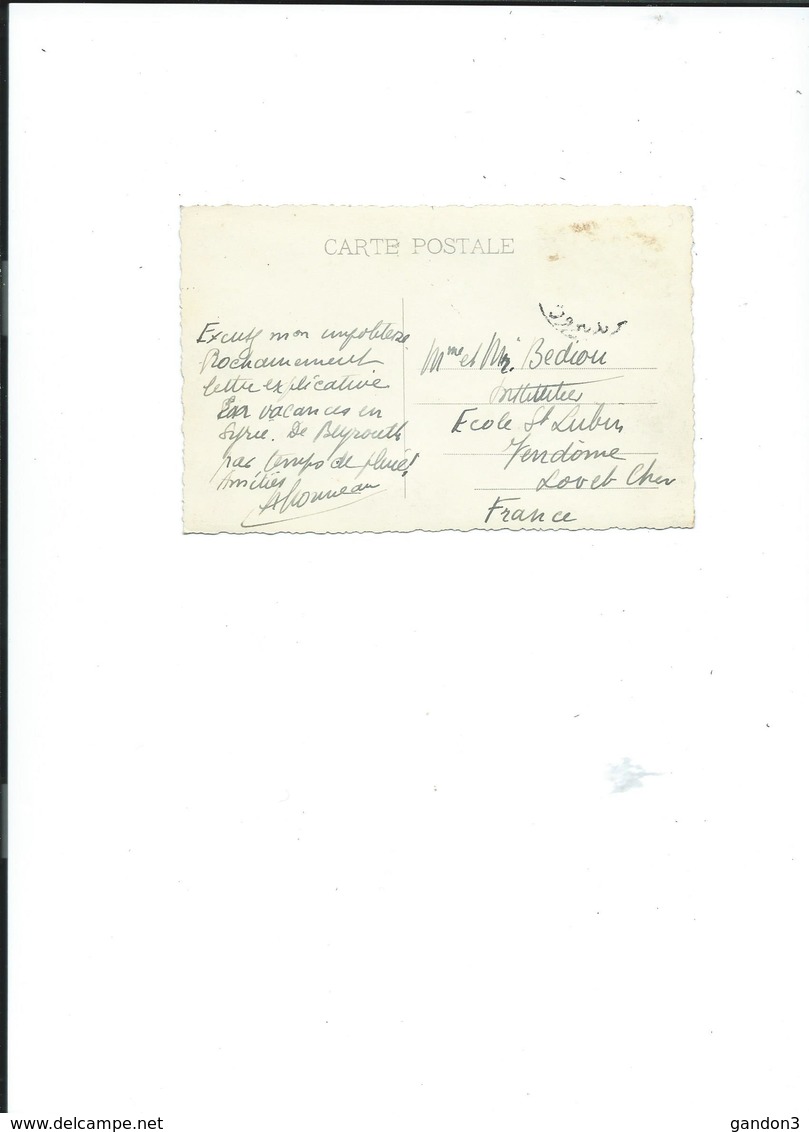 CARTE POSTALE
Excuse mon impolitesse
Prochainement
lettre explicative
En vacances en
Syrie. De Beyrouth
par temps de pluie!
Amitiés
Mme et Mr. Bediou
Instituteur
Ecole St Lubin
Vendôme
Loir et Cher
France
delcampe.net
gandon3